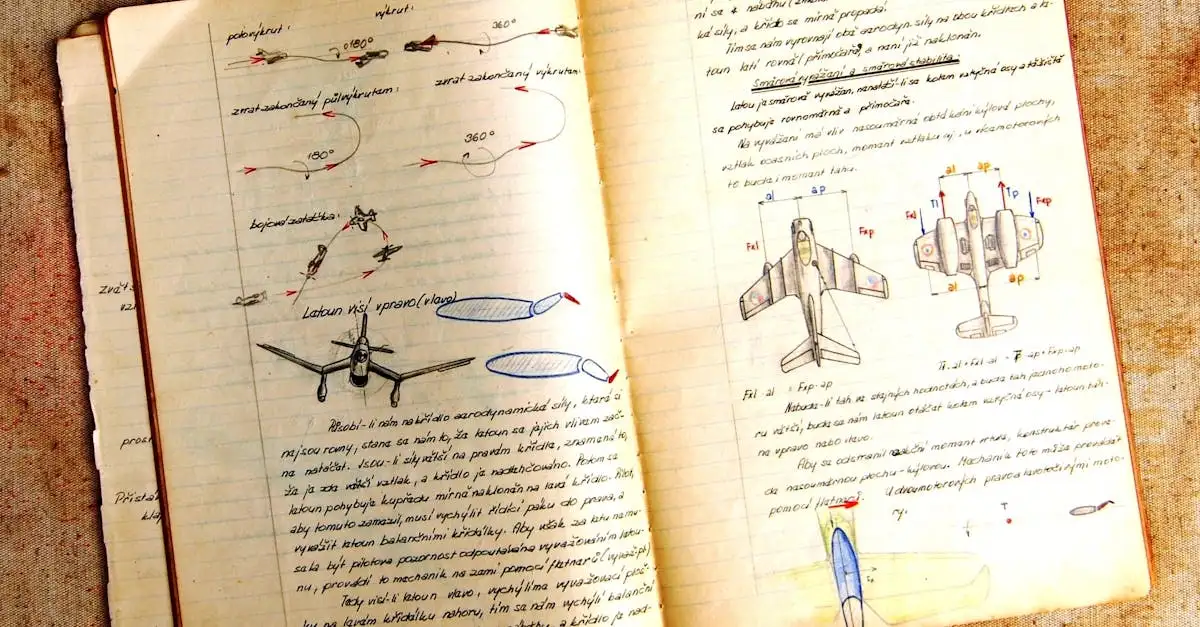 polovýkrut:
výkrut:
180°
360°
zvrat zakončený půlvýkrutem:
zvrat zakončený výkrutem:
180°
360°
bojová zatáčka:
Letoun visí vpravo (vlevo)
Působí-li nám na křídlo aerodynamické síly, které si
nejsou rovny, stane se nám to, že letoun se jejich vlivem zač-
ne natáčet. Jsou-li síly větší na pravém křídle, znamená to,
že je zde větší vztlak, a křídlo je nadlehčováno. Potom se
letoun pohybuje kupředu mírně nakloněn na levé křídlo. Pilot,
aby tomuto zamezil, musí vychýlit řídící páku do prava, a
vyvážit letoun balančními křidélky. Aby však za letu nemu-
sela být pilotova pozornost odpoutávána vyvažováním letou-
nu, provádí to mechanik na zemi pomocí fletnerů (vyvaž. pl.)
Tedy visí-li letoun vlevo, vychýlíme vyvažovací ploš-
ku na levém křidélku nahoru, tím se nám vychýlí balanční
a křídlo je nad-
Zvrát
vzt
pros
Přistá
kla
ní se
ké síly, a křídlo se mírně propadá.
Tím se nám vyrovnají obě aerodyn. síly na obou křídlech a le-
toun letí rovně i přímočaře, a není již nakloněn.
Směrové vyvážení a směrová stabilita.
Letou je směrově vyvážen, nenatáčí-li se kolem vztyčné osy a těžiště
se pohybuje rovnoměrně a přímočaře.
Na vyvážení má vliv nesouměrné obtékání kýlové plochy,
vztlak ocasních ploch, moment vztlaku aj., u vícemotorových
to bude i moment tahu.
al ap
Fxl Fxp
al ap
Fxl Tl Tp Fxp
al ap
Fxl · al = Fxp · ap
Tl · al + Fxl · al = Tp · ap + Fxp · ap
Nebude-li tah ve stejných hodnotách, a bude tah jednoho moto-
ru větší, bude se nám letoun otáčet kolem vztyčné osy - letoun táh-
ne vpravo nebo vlevo.
Aby se odstranil reakční moment vrtule, konstruktér prove-
de nesouměrnou plochu - kýlovou. Mechanik toto může provádět
pomocí fletnerů. U dvoumotorových pravo a levotočivými moto-
ry.
T